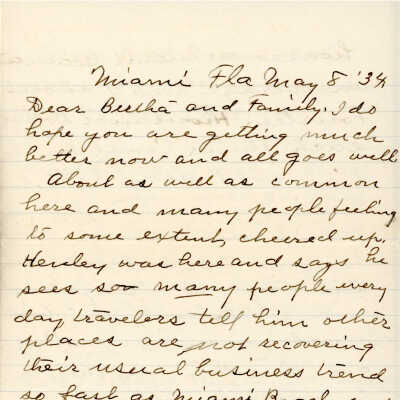 Miami Fla May 8 '34
Dear Bertha and Family. I do
hope you are getting much
better now and all goes well
About as well as common
here and many people feeling
to some extent, cheered up.
Henley was here and says he
sees so many people every
day travelers tell him other
places are not recovering
their usual business trend
so fast as Miami Beach and